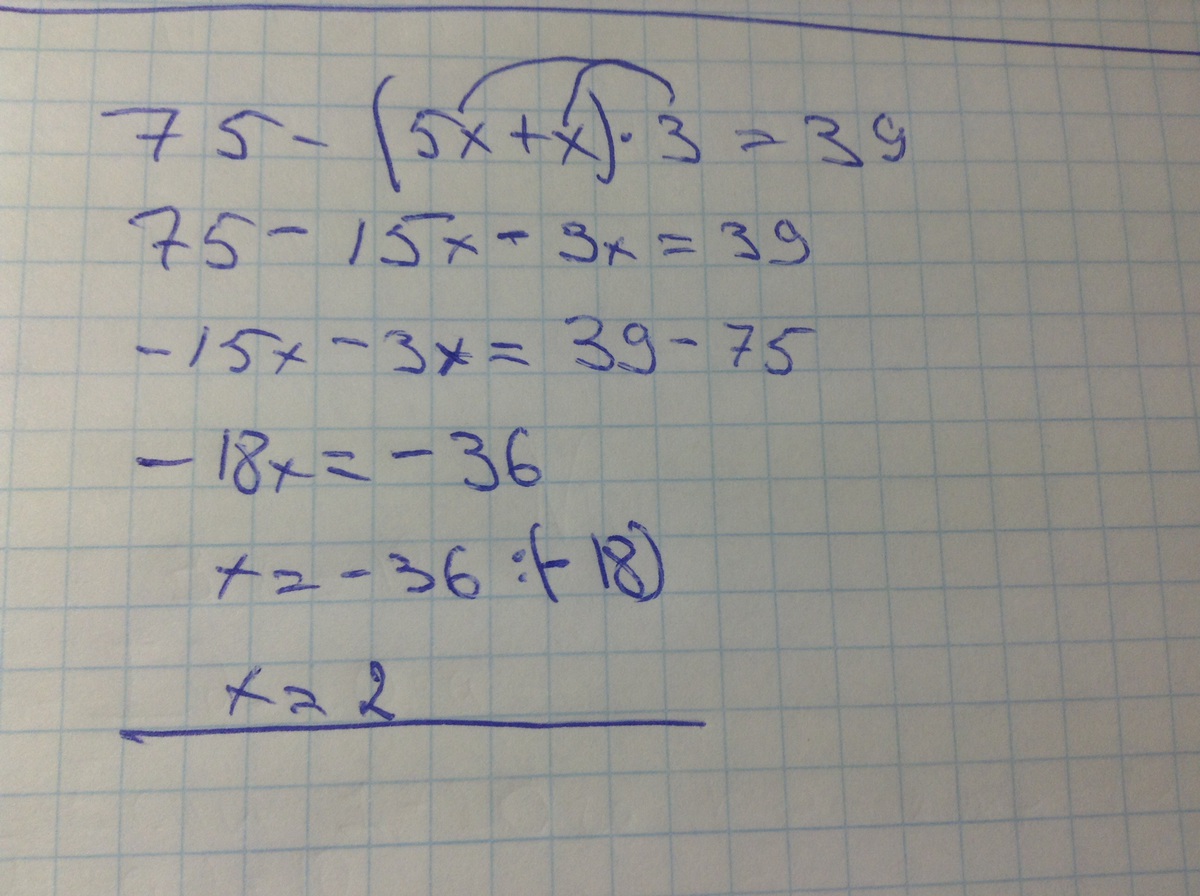 75 - (5x + x) · 3 = 39
75 - 15x - 3x = 39
- 15x - 3x = 39 - 75
- 18x = - 36
x = - 36 : (- 18)
x = 2